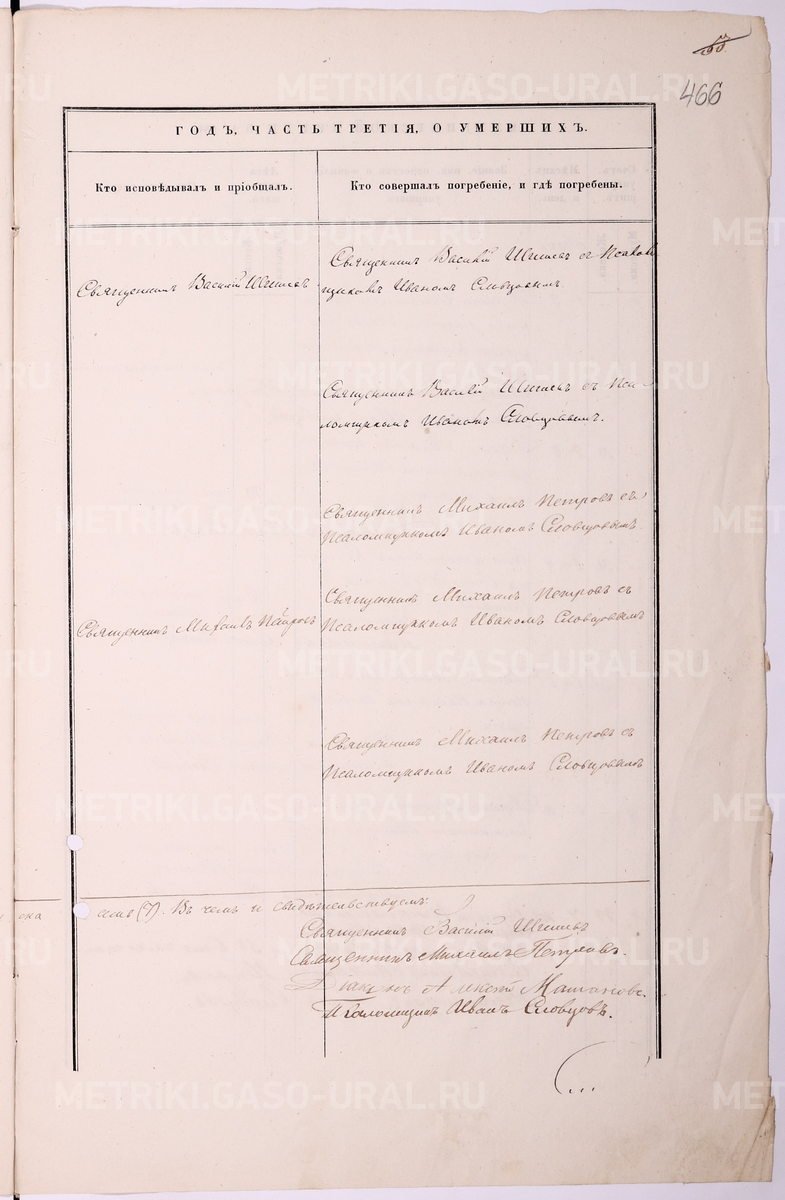 466
ГОДЪ, ЧАСТЬ ТРЕТІЯ, О УМЕРШИХЪ.
Кто исповѣдывалъ и пріобщалъ.
Кто совершалъ погребеніе, и гдѣ погребены.
Священникъ Василій
Священникъ Василій съ Псалом
щикомъ Иваномъ Словцовымъ
Священникъ Василій съ Пса-
ломщикомъ Иваномъ Словцовымъ.
Священникъ Михаилъ Петровъ съ
Псаломщикомъ Иваномъ Словцовымъ
Священникъ Михаилъ Петровъ
Священникъ Михаилъ Петровъ съ
Псаломщикомъ Иваномъ Словцовымъ
Священникъ Михаилъ Петровъ съ
Псаломщикомъ Иваномъ Словцовымъ
(7). Въ чемъ и свидѣтельствуемъ:
Священникъ Василій
Священникъ Михаилъ Петровъ.
Діаконъ Алексій
Псаломщикъ Иванъ Словцовъ.
METRIKI.GASO-URAL.RU